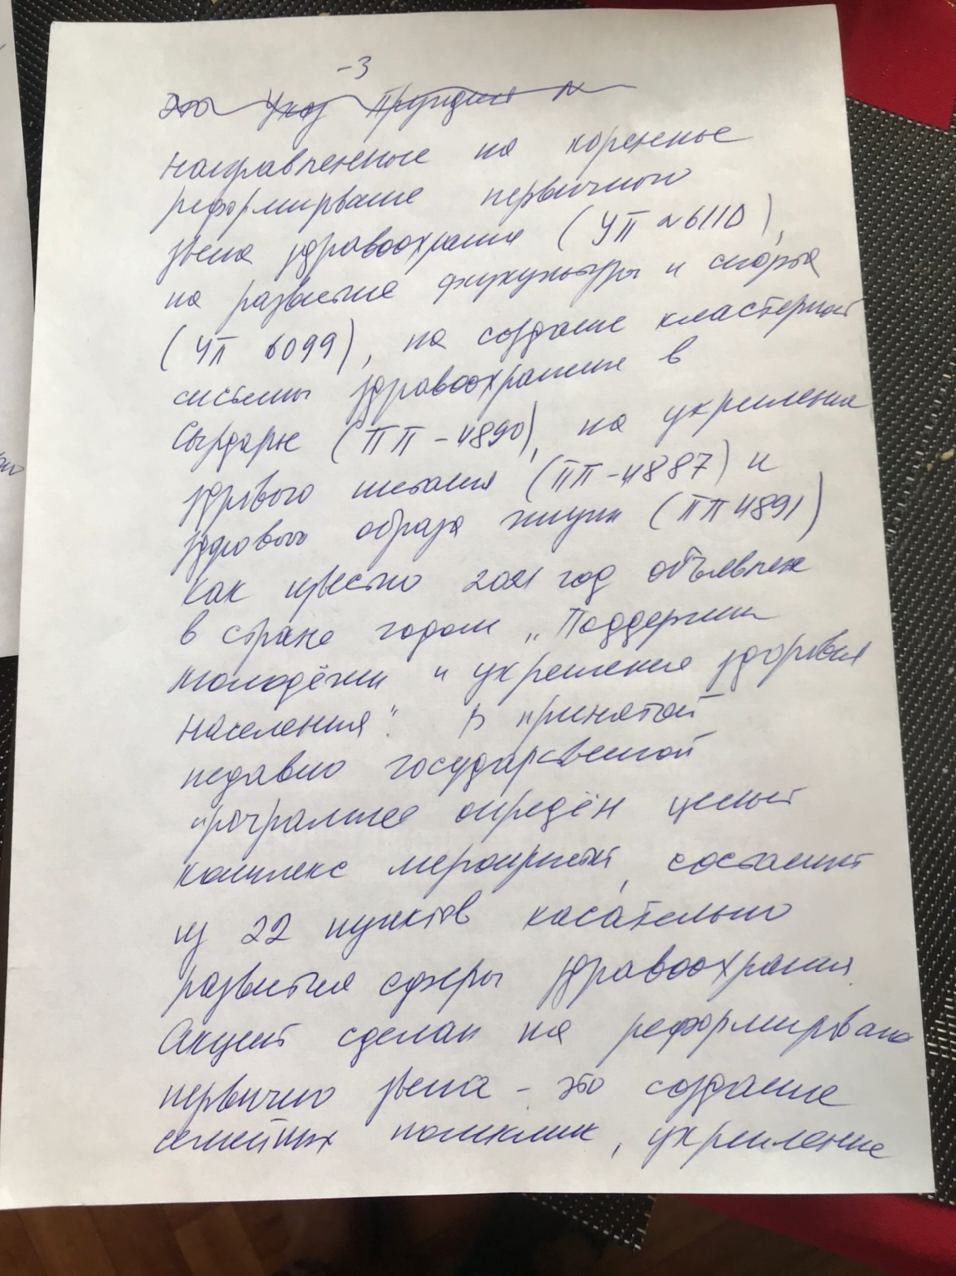 -3
Это Указ Президента №
направленные на коренные
реформирование первичного
звена здравоохранения (УП №6110),
на развитие физкультуры и спорта
(УП 6099), на создание кластерной
системы здравоохранения в
Сырдарье (ПП-4890), на укрепление
здорового питания (ПП-4887) и
здорового образа жизни (ПП 4891)
Как известно 2021 год объявлен
в стране годом „Поддержки
молодёжи и укрепления здоровья
населения". В принятой
недавно государственной
программе определён целый
комплекс мероприятий, состоящий
из 22 пунктов касательно
развития сферы здравоохранения.
Акцент сделан на реформирование
первичного звена - это создание
семейных поликлиник, укрепление